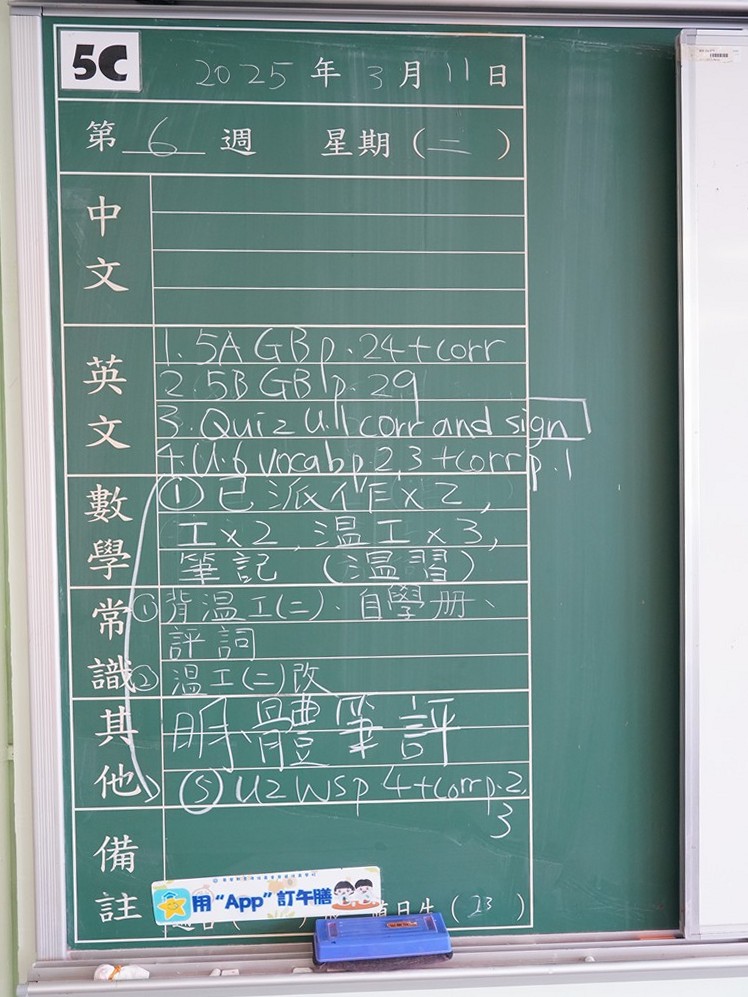 5C
2025 年 3 月 11 日
第 6 週 星期 (二)
中文
英文
1. 5A GB p.24 + corr
2. 5B GB p.29
3. Quiz U.1 corr and sign
4. U.6 vocab p.2,3 + corr p.1
數學
① 已派作x2,
工x2, 温工x3,
筆記 (温習)
常識
① 背温工(二)、自學册、
評詞
② 温工(二)改
其他
體筆評
⑤ U2 WS p 4 + corr p.2,
3
備註
用“App”訂午膳
值日生 (23)